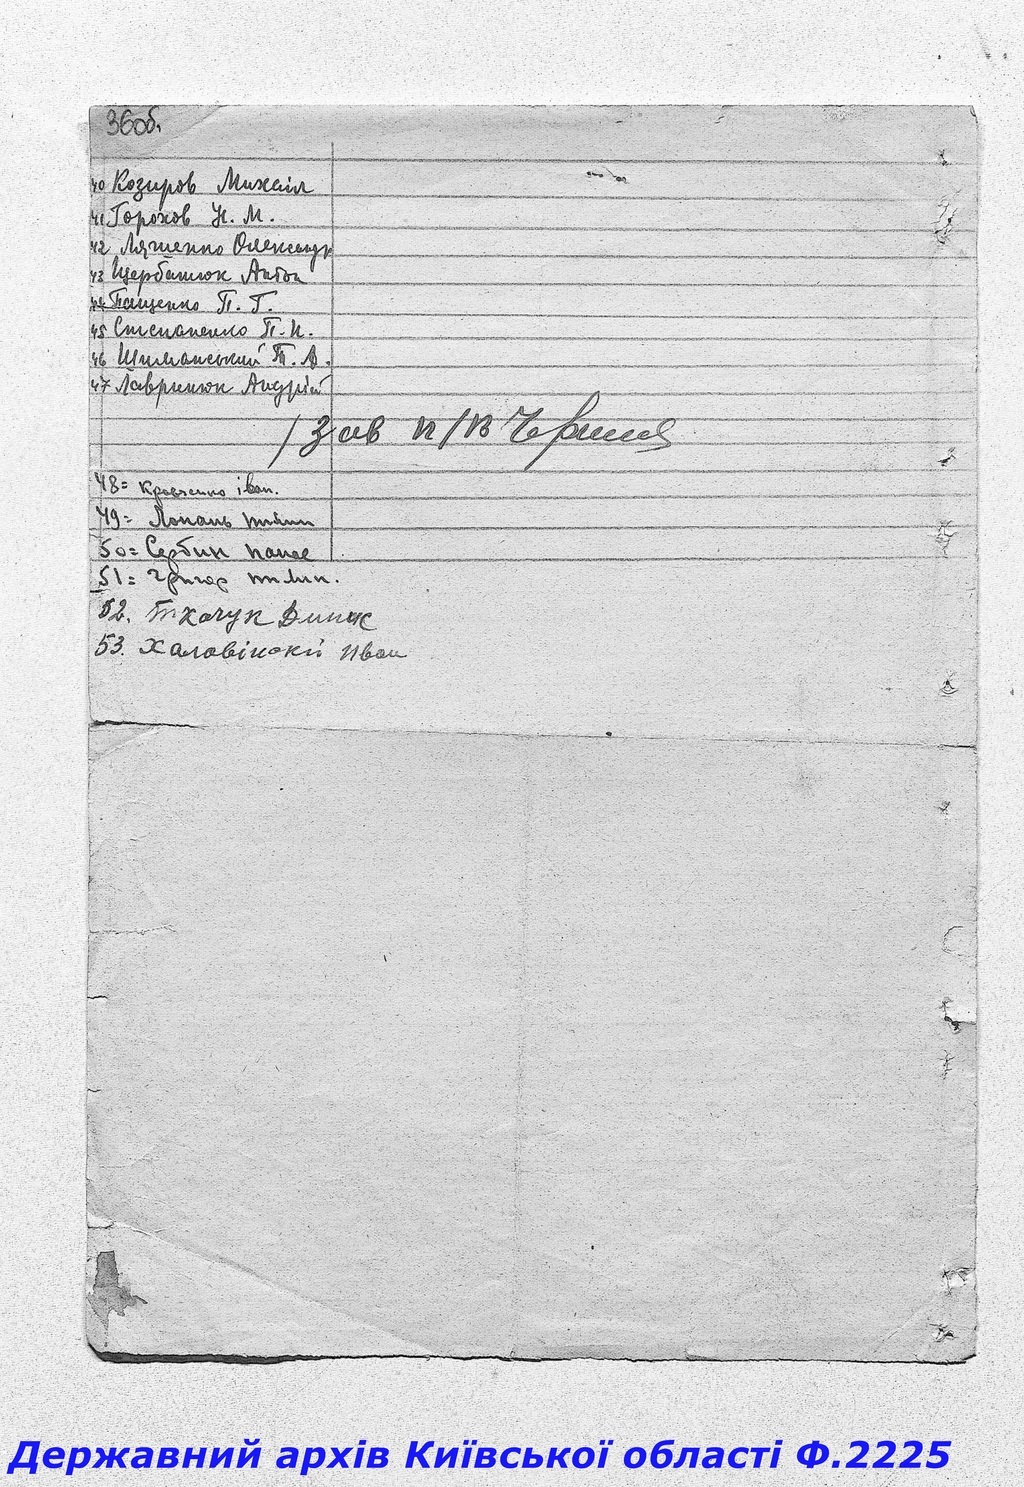 36об.
40 Козиров Михаіл
41 Горохов Н. М.
42 Ляшенко Олександр
43 Щербатюк Антон
44 Пащенко П. Г.
45 Степаненко П. И.
46 Шиманський Т. А.
47 Лавринюк Андрій
/Зав п/в
48= Кравченко іван.
49= Лопань
50= Сербин панас
51= григор
52. Ткачук
53. Халавінскй Иван
Державний архів Київської області Ф.2225